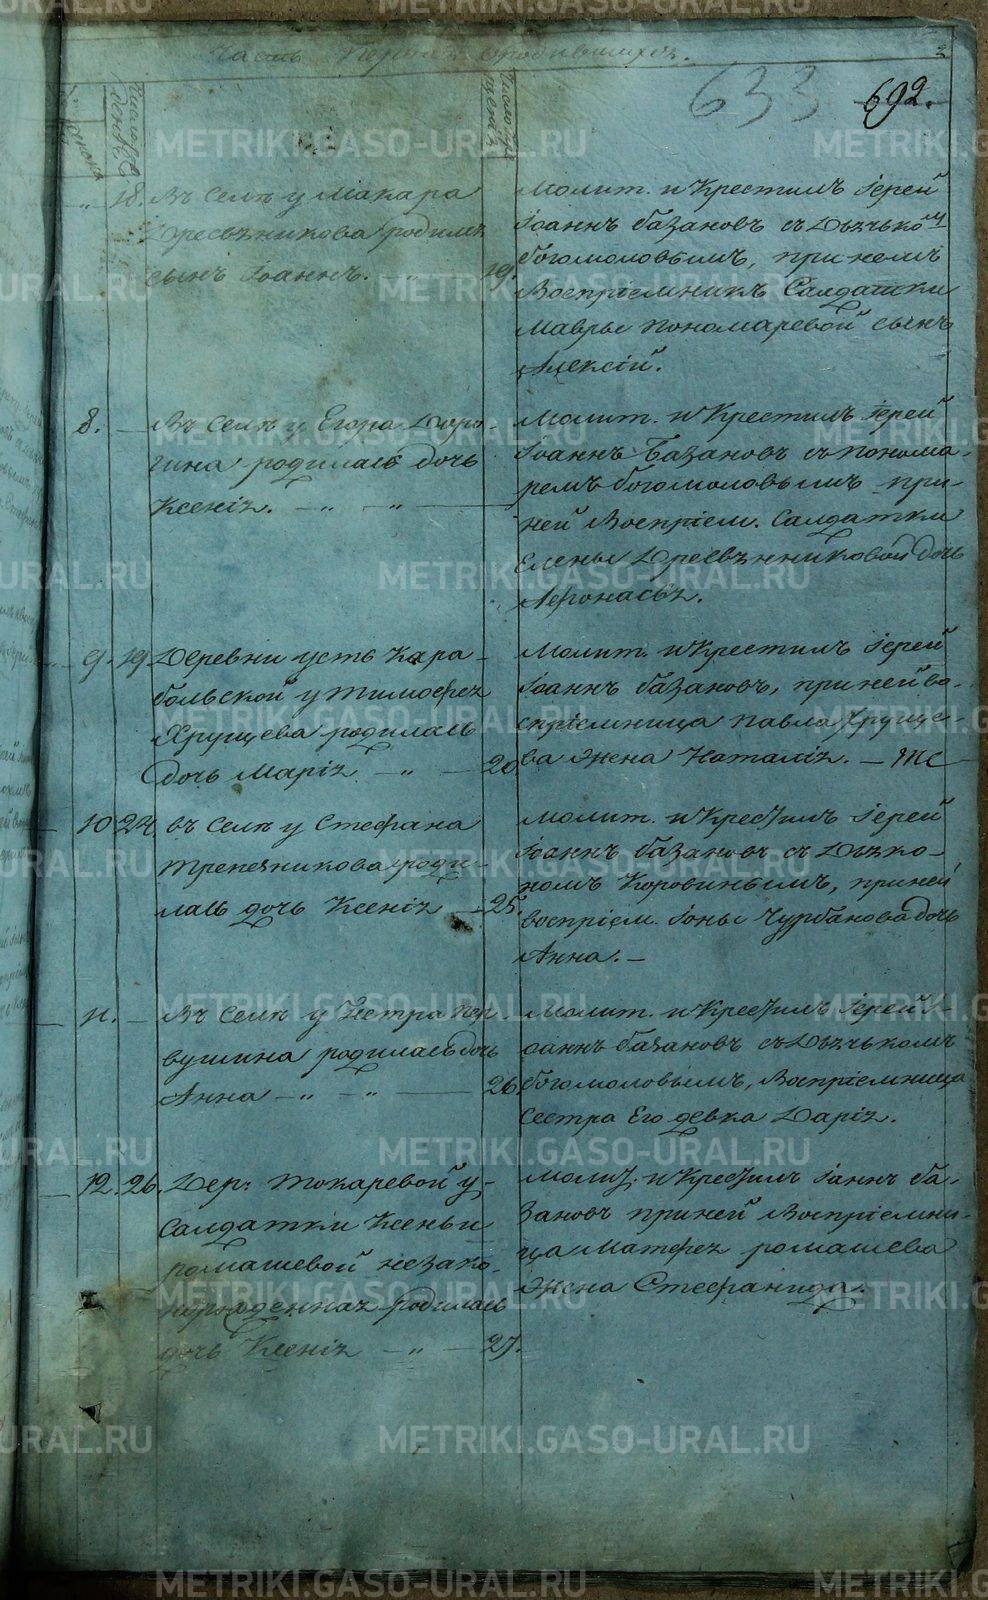 Часть Первая о родившихся.
2
633 692.
18. Въ селѣ у Макара
Древѣсникова родился
сынъ Іоаннъ. „ 19.
Молит. и Крестилъ Іерей
Іоаннъ Базановъ съ Дьячкомъ
Богомоловымъ, при немъ
Воспріемникъ Салдатки
Мавры Пономаревой сынъ
Алексій.
8. Въ селѣ у Егора Доро-
гина родилась дочь
Ксенія. — „ — „ —
Молит. и Крестилъ Іерей
Іоаннъ Базановъ съ понома-
ремъ Богомоловымъ при
ней Воспріем. Салдатки
Елены Древѣнниковой дочь
Афонасья.
9. 19. Деревни усть Кара-
больской у Тимофея
Хрущева родилась
дочь Марія — „ — 20.
Молит. и Крестилъ Іерей
Іоаннъ Базановъ, при ней во-
спріемница Павла Хруще-
ва Жена Наталія. — ТЖ
10. 24. въ селѣ у Стефана
Трепезникова роди-
лась дочь Ксенія — 25.
Молит. и Крестилъ Іерей
Іоаннъ Базановъ съ Дьяко-
номъ Коровинымъ, при ней
воспріем. Іоны Чурбанова дочь
Анна. —
11. — Въ селѣ у Петра Пер
вушина родилась дочь
Анна — „ — „ — 26.
Молит. и Крестилъ Іерей І-
оаннъ Базановъ съ Дьячькомъ
Богомоловымъ, Воспріемница
Сестра Его девка Дарія.
12. 26. Дер: Токаревой у
Салдатки Ксеньи
Ромашевой незако-
норожденная родилась
дочь Ксенія — „ — 27.
Молит. и Крестилъ Іоаннъ Ба-
зановъ при ней Воспріемни-
ца Матфея Ромашева
Жена Стефанида.
METRIKI.GASO-URAL.RU